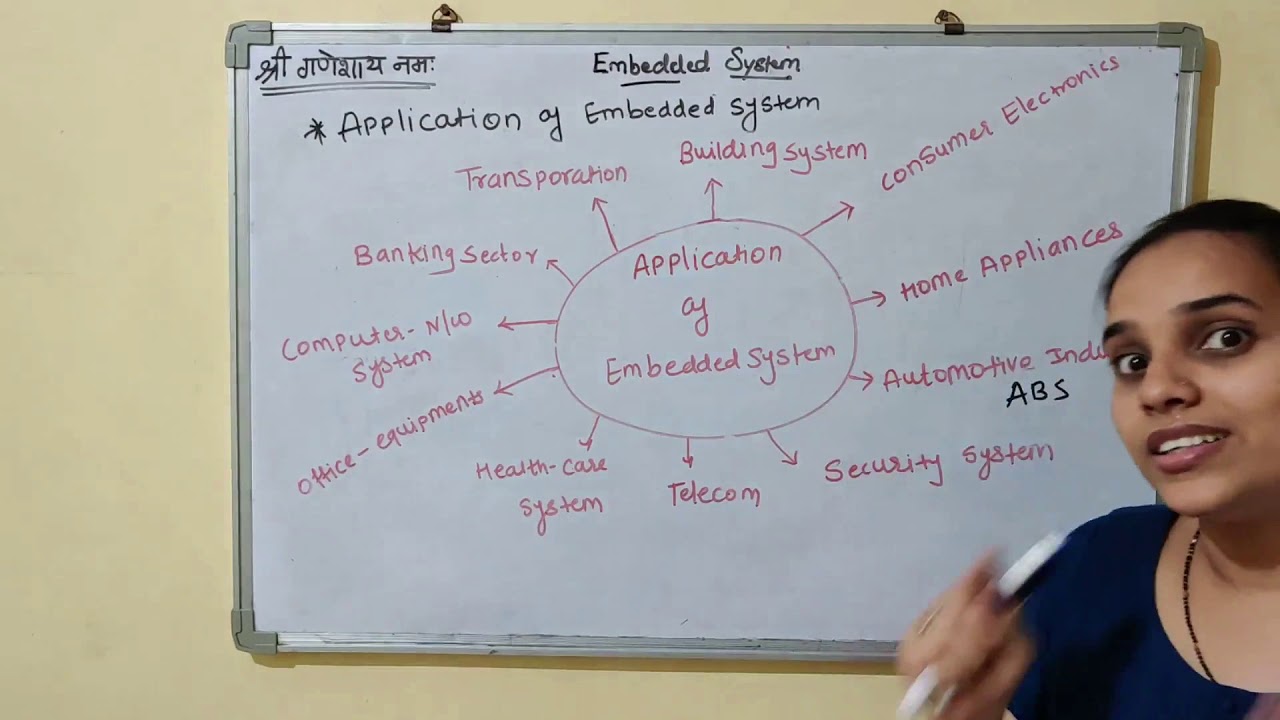 श्री गणेशाय नमः
Embedded System
* Application of Embedded System
Building System
Consumer Electronics
Transporation
Banking Sector
Home Appliances
Application
of
Embedded System
Computer- N/W
System
Automotive
ABS
Office-equipments
Health-Care
System
Telecom
Security System